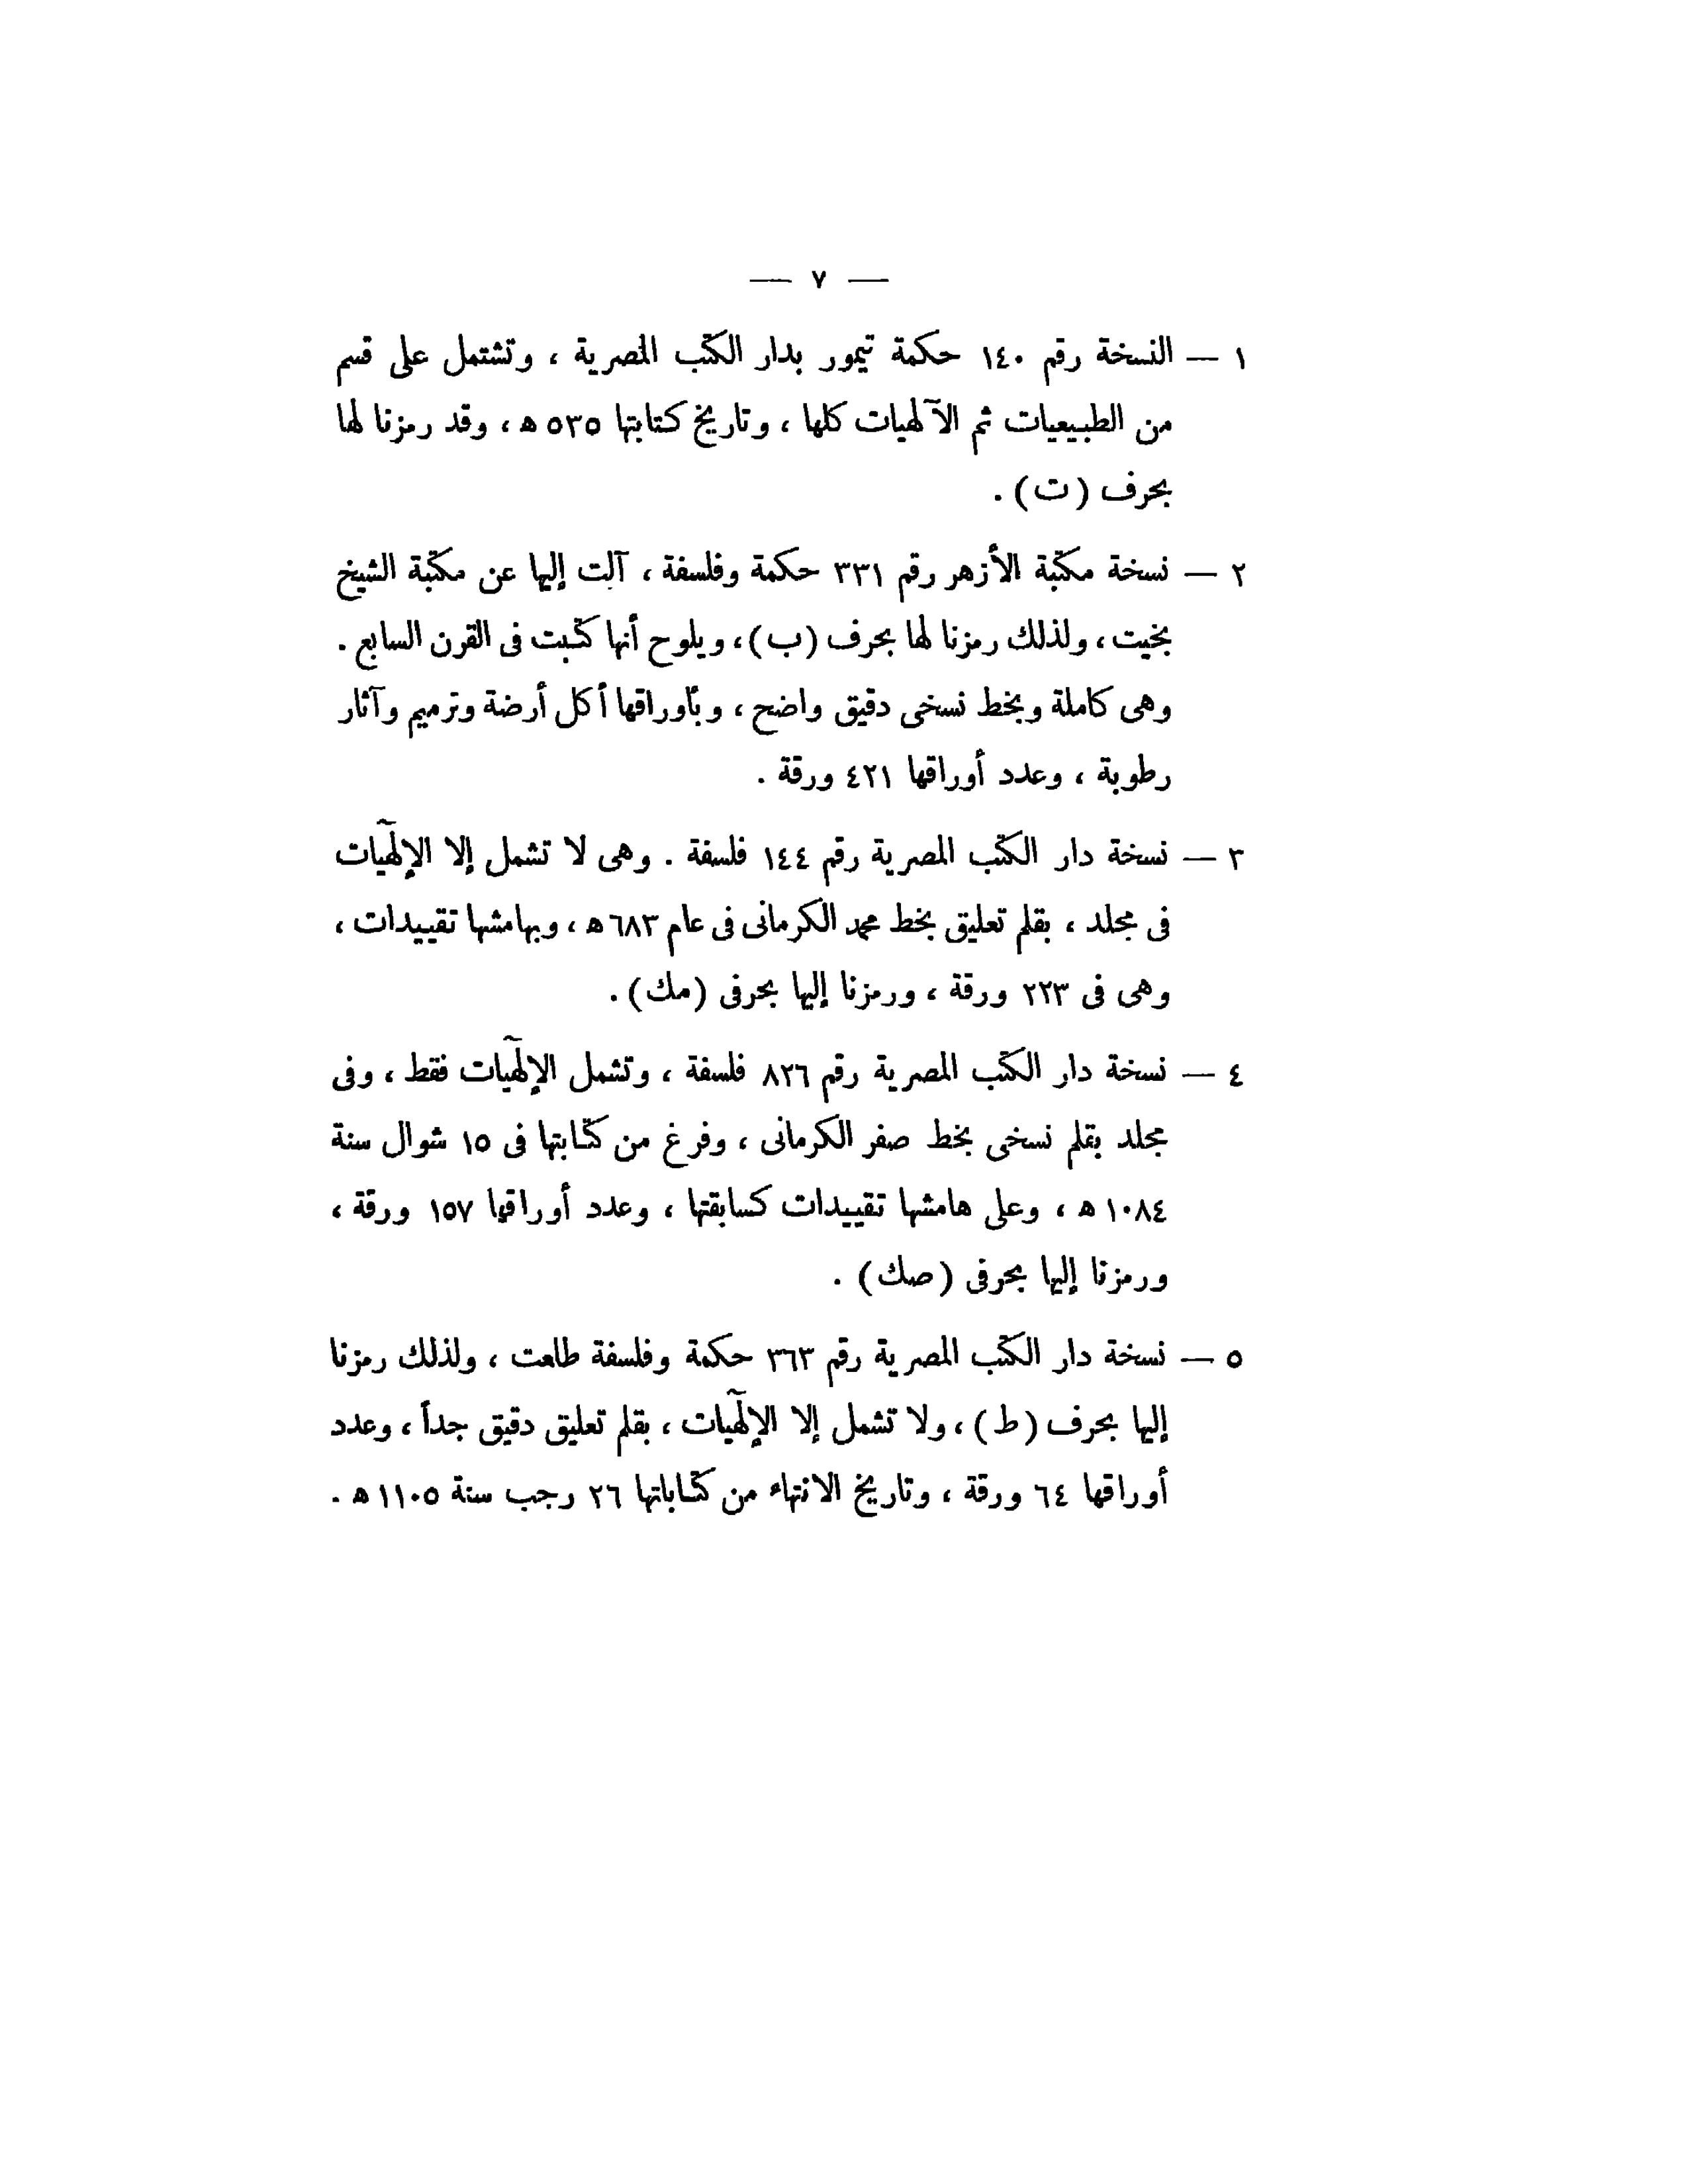 — ٧ —
١ — النسخة رقم ١٤٠ حكمة تيمور بدار الكتب المصرية ، وتشتمل على قسم
من الطبيعيات ثم الآلهيات كلها ، وتاريخ كتابتها ٥٣٥ ه ، وقد رمزنا لها
بحرف (ت) .
٢ — نسخة مكتبة الأزهر رقم ٣٣١ حكمة وفلسفة ، آلت إليها عن مكتبة الشيخ
بخيت ، ولذلك رمزنا لها بحرف (ب) ، ويلوح أنها كتبت فى القرن السابع .
وهى كاملة وبخط نسخى دقيق واضح ، وبأوراقها أكل أرضة وترميم وآثار
رطوبة ، وعدد أوراقها ٤٢١ ورقة .
٣ — نسخة دار الكتب المصرية رقم ١٤٤ فلسفة . وهى لا تشمل إلا الإلهيات
فى مجلد ، بقلم تعليق بخط محمد الكرمانى فى عام ٦٨٣ ه ، وبهامشها تقييدات ،
وهى فى ٢٢٣ ورقة ، ورمزنا إليها بحرفى (مك) .
٤ — نسخة دار الكتب المصرية رقم ٨٢٦ فلسفة ، وتشمل الإلهيات فقط ، وفى
مجلد بقلم نسخى بخط صفر الكرمانى ، وفرغ من كتابتها فى ١٥ شوال سنة
١٠٨٤ ه ، وعلى هامشها تقييدات كسابقتها ، وعدد أوراقها ١٥٧ ورقة ،
ورمزنا إليها بحرفى (صك) .
٥ — نسخة دار الكتب المصرية رقم ٣٦٣ حكمة وفلسفة طلعت ، ولذلك رمزنا
إليها بحرف (ط) ، ولا تشمل إلا الإلهيات ، بقلم تعليق دقيق جداً ، وعدد
أوراقها ٦٤ ورقة ، وتاريخ الانتهاء من كتاباتها ٢٦ رجب سنة ١١٠٥ ه .